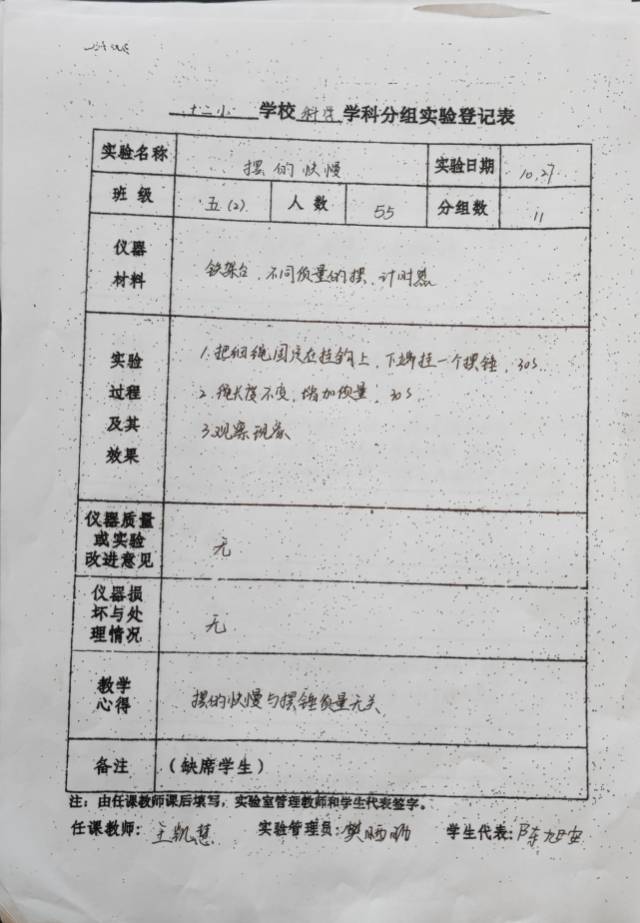 十二小 学校 科学 学科分组实验登记表
实验名称 摆的快慢 实验日期 10.27
班级 五(2) 人数 55 分组数 11
仪器
材料
铁架台、不同质量的摆、计时器
实验
过程
及其
效果
1.把细绳固定在挂钩上,下端挂一个摆锤,30S
2.绳长度不变,增加质量,30S
3.观察现象
仪器质量
或实验
改进意见
无
仪器损
坏与处
理情况
无
教学
心得
摆的快慢与摆锤质量无关
备注 (缺席学生)
注:由任课教师课后填写,实验室管理教师和学生代表签字。
任课教师:王凯慧 实验管理员: 学生代表:陈